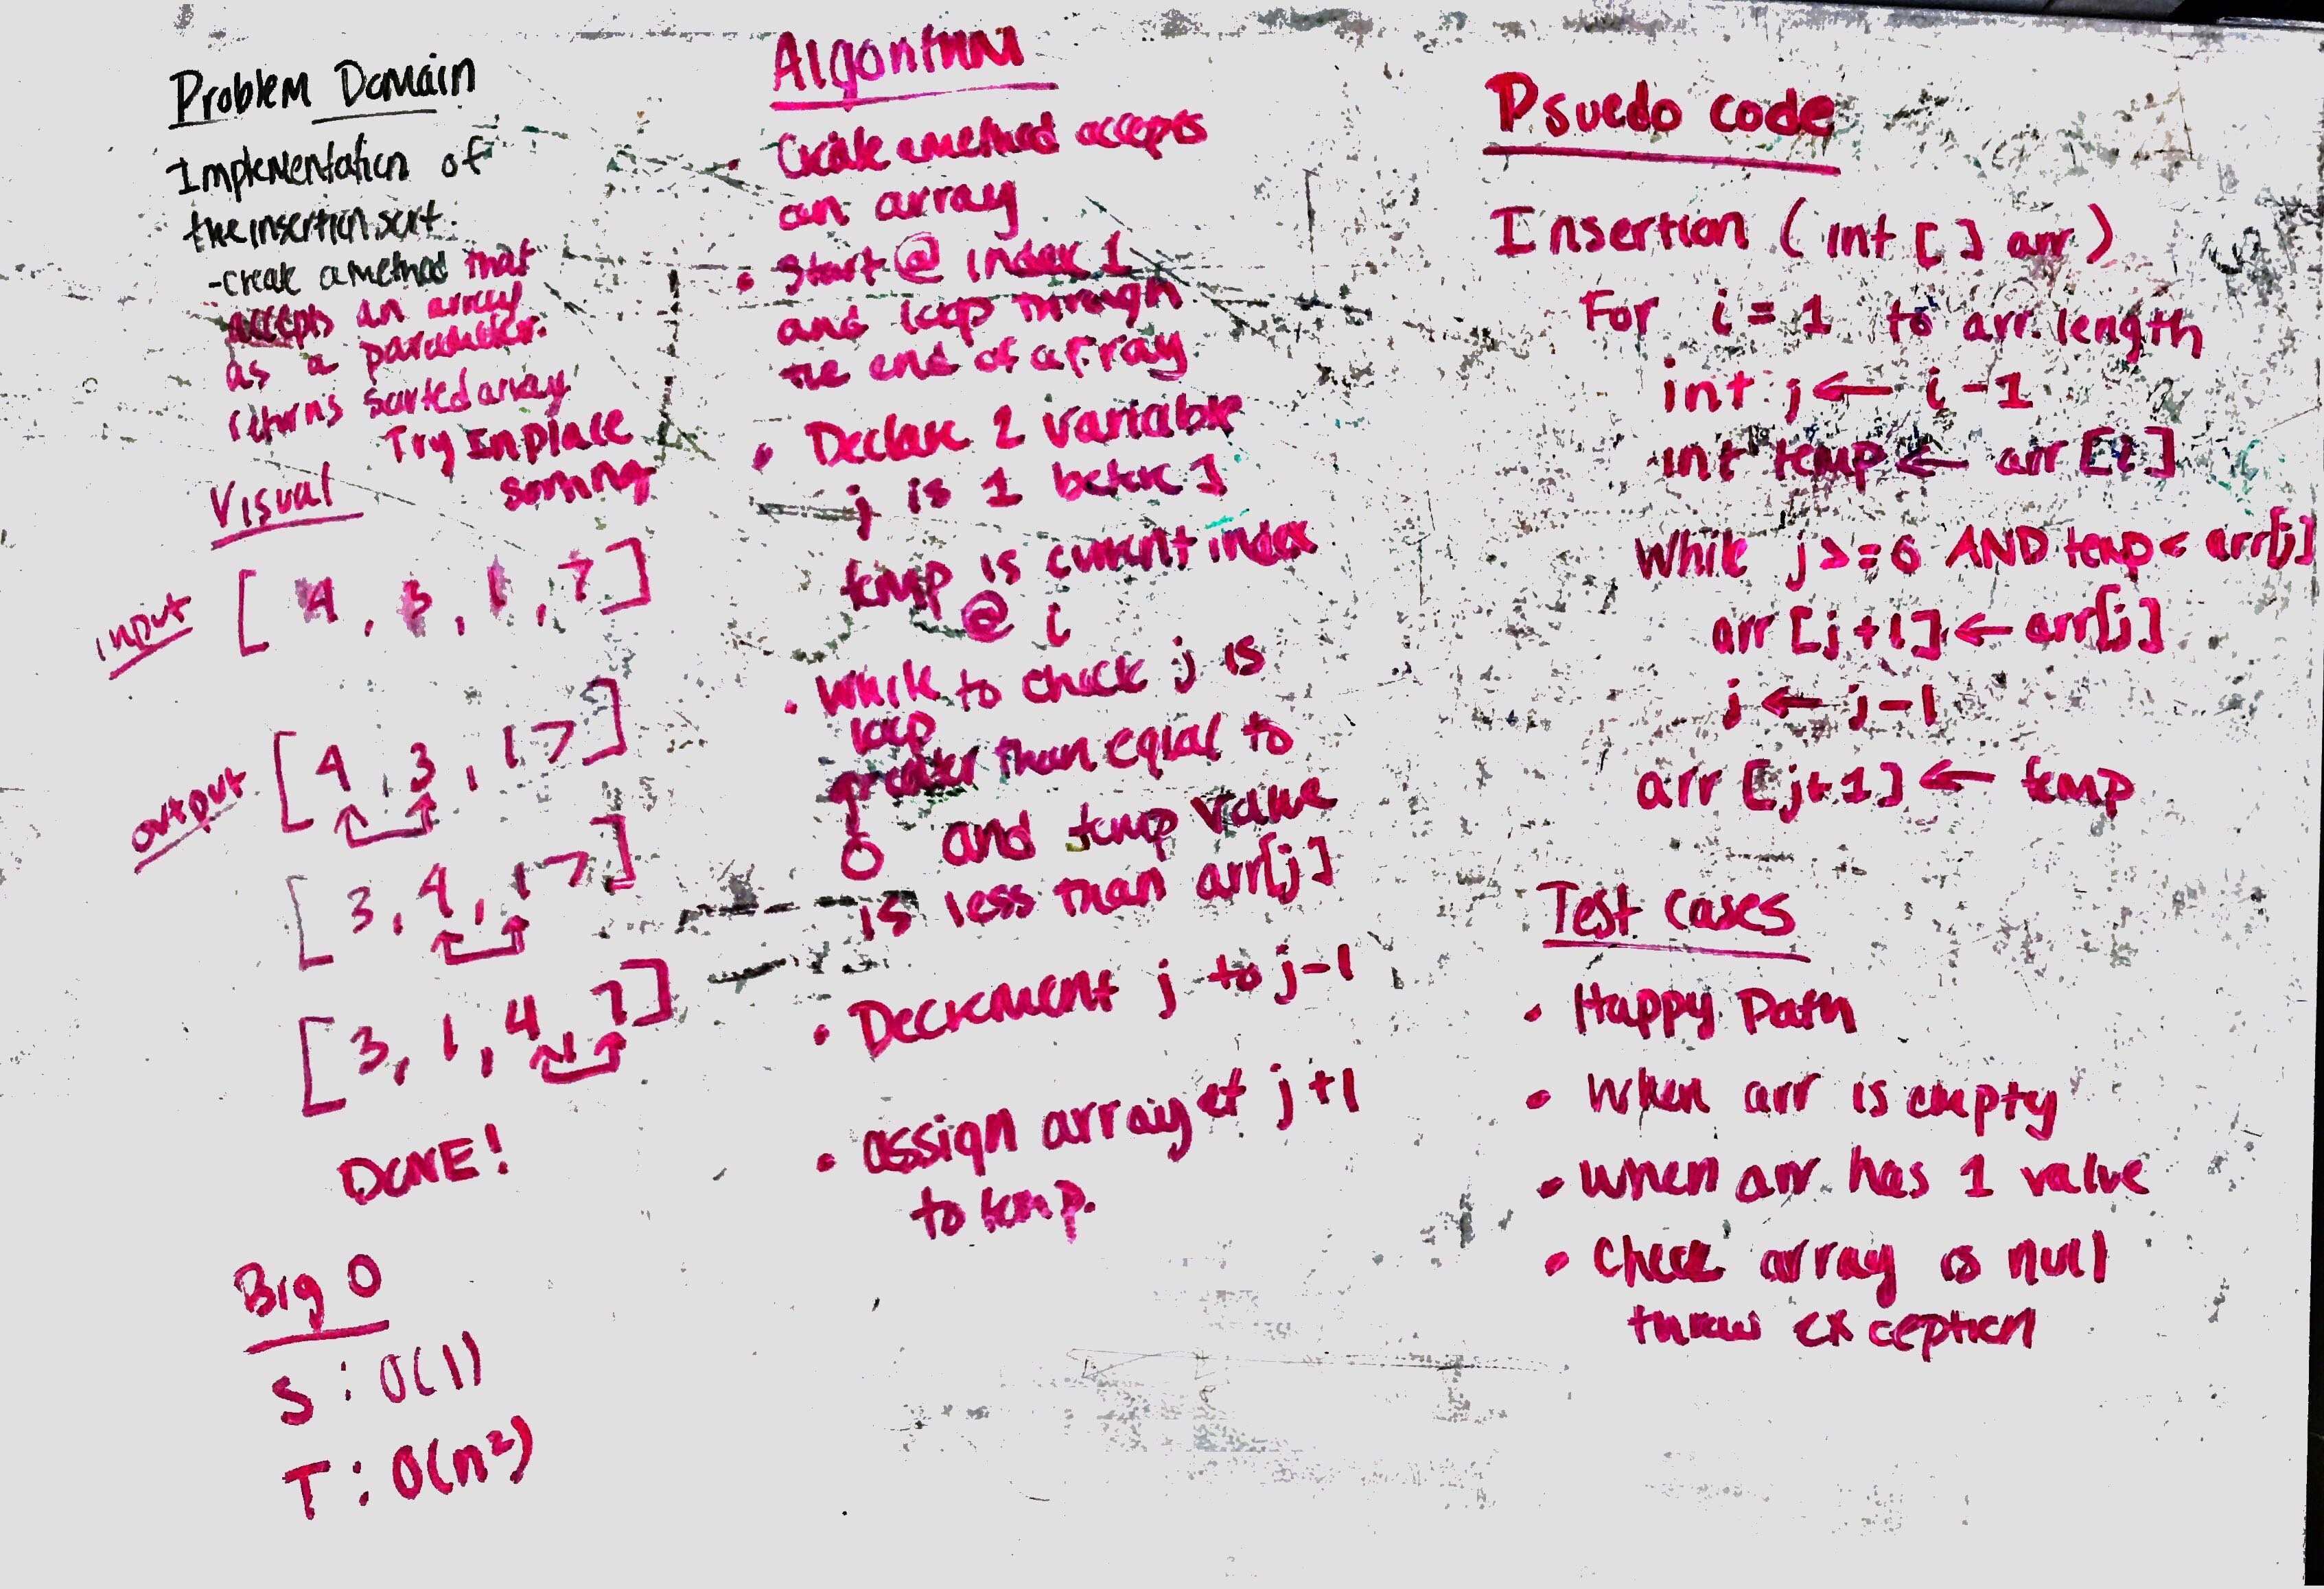 Problem Domain
Implementation of
the insertion sort.
-create a method that
accepts an array
as a parameter.
returns sorted array
Try In place
sorting
Visual
Input [ 4, 3, 1, 7 ]
output [ 4, 3, 1 7 ]
[ 3, 4, 1 7 ]
[ 3, 1, 4, 7 ]
DONE!
Big O
S : O(1)
T : O(n²)
Algorithm
• Create a method accepts
an array
• Start @ index 1
and loop through
the end of array
• Declare 2 variable
j is 1 before
temp is current index
@ i
• While to check j is
loop
greater than equal to
0 and temp value
is less than arr[j]
• Decrement j to j-1
• assign array at j+1
to temp.
Psuedo code
Insertion ( int [ ] arr )
For i = 1 to arr. length
int j ← i - 1
int temp ← arr [i]
While j >= 0 AND temp < arr[j]
arr [j+1] ← arr[j]
j ← j-1
arr [j+1] ← temp
Test Cases
• Happy Path
• When arr is empty
• When arr has 1 value
• Check array is null
throw exception